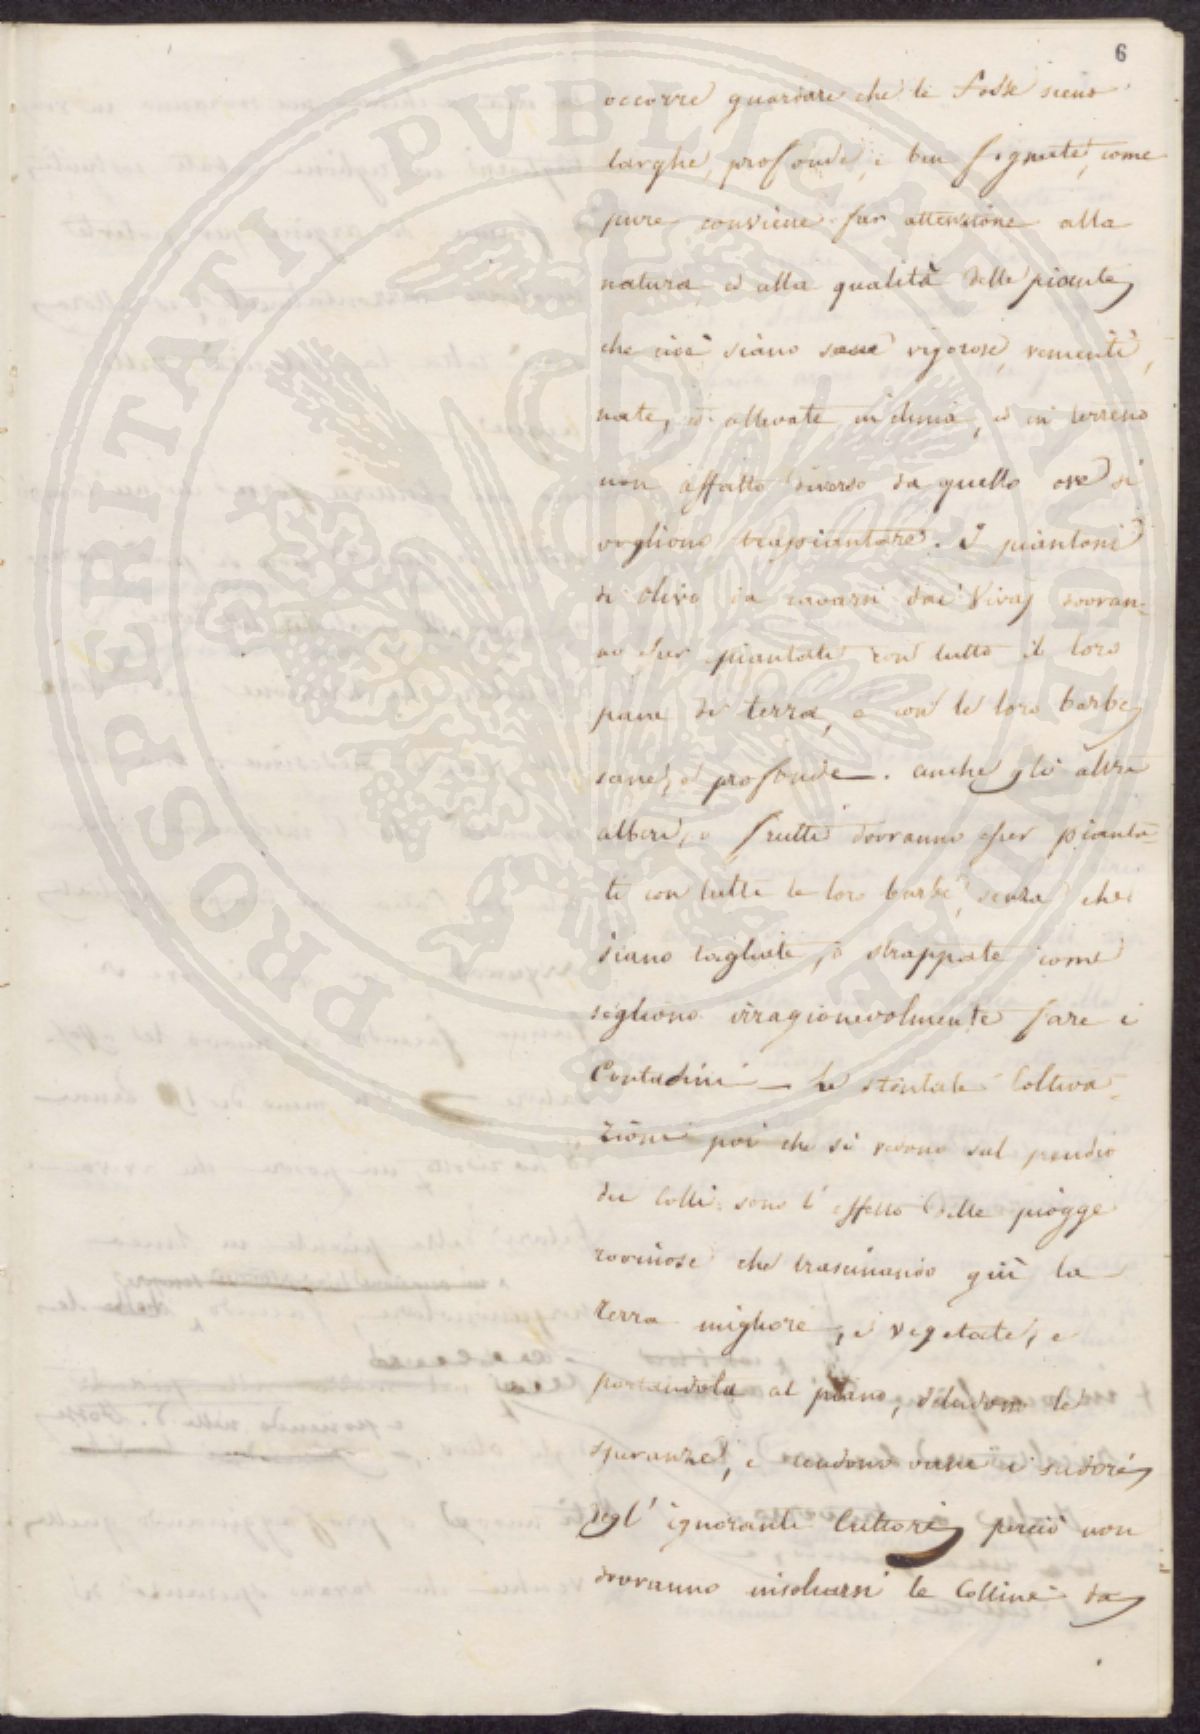 6
occorre guardare che le fosse sieno
larghe, profonde, e ben fognate, come
pure conviene far attenzione alla
natura, ed alla qualità delle piante
che cioè siano sane vigorose,
nate, ed allevate in clima, ed in terreno
non affatto diverso da quello ove si
vogliono trapiantare. I piantoni
di olivo da cavarsi dai Vivaj dovran-
no esser piantati con tutto il loro
pane di terra, e con le loro barbe
sane, e profonde. anche gli altri
alberi, e frutti dovranno esser pianta-
ti con tutte le loro barbe, senza che
siano tagliate, o strappate come
sogliono irragionevolmente fare i
Contadini — Le stentate Coltiva-
zioni poi che si vedono sul pendio
dei Colli sono l'effetto delle piogge
rovinose che trascinando giù la
Terra migliore, e vegetale, e
portandola al piano, deludono le
speranze, e rendono vani i sudori
degl'ignoranti Cultori, perciò non
dovranno insolcarsi le Colline da
PROSPERITATI PUBLICAE AUGENDAE